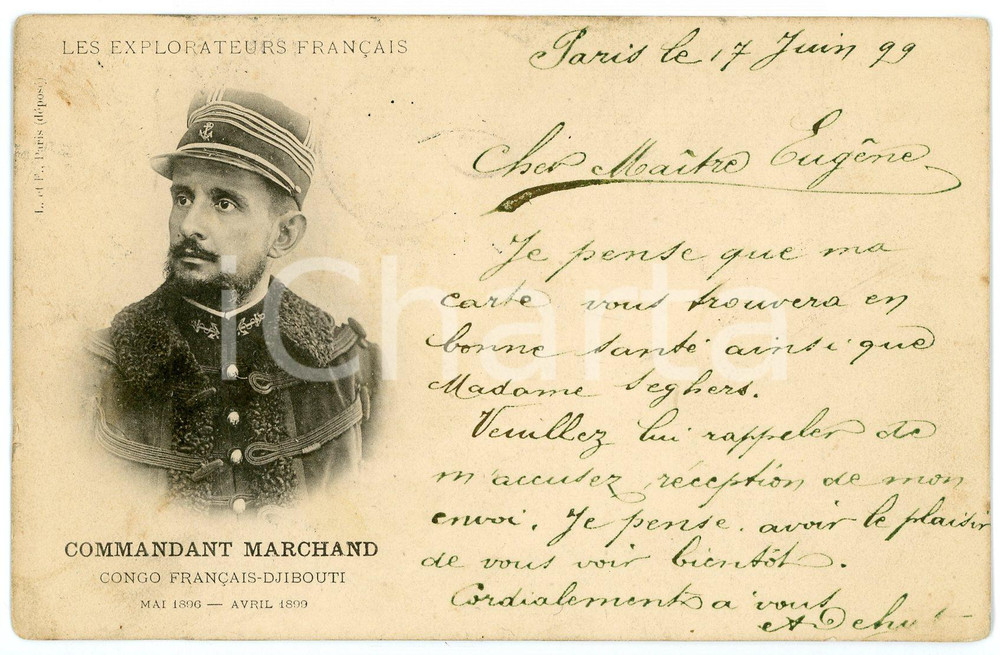 LES EXPLORATEURS FRANÇAIS
L. et F., Paris (déposé)
COMMANDANT MARCHAND
CONGO FRANÇAIS-DJIBOUTI
MAI 1896 — AVRIL 1899
Paris le 17 Juin 99
Cher Maître Eugêne
Je pense que ma
carte vous trouvera en
bonne santé ainsi que
Madame Seghers.
Veuillez lui rappeler de
m'accusez réception de mon
envoi. Je pense avoir le plaisir
de vous voir bientôt.
Cordialement à vous
iCharta